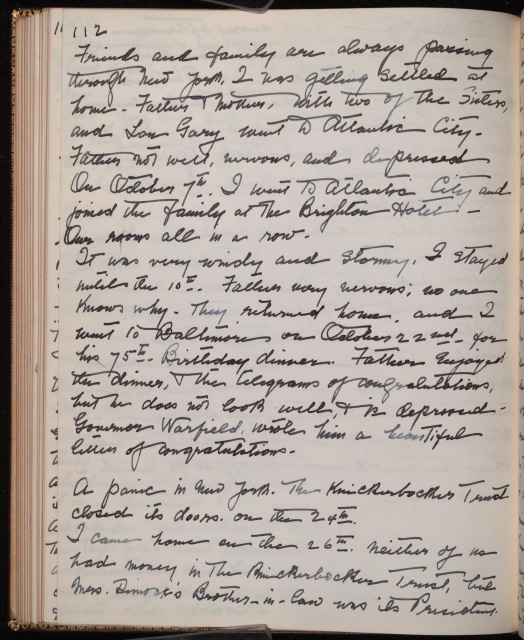 112
Friends and family are always passing
through New York. I was getting settled at
home - Father & Mother, with two of the Sisters,
and Lou Gary went to Atlantic City -
Father not well, nervous, and depressed
On October 7th. I went to Atlantic City and
joined the family at the Brighton Hotel -
Our rooms all in a row.
It was very windy and stormy. I stayed
until the 10th. Father very nervous; no one
knows why - They returned home, and I
went to Baltimore on October 22nd - for
his 75th Birthday dinner. Father enjoyed
the dinner, & the telegrams of congratulations,
but he does not look well, & is depressed -
Governor Warfield, wrote him a beautiful
letter of congratulations -
A panic in New York. The Knickerbocker Trust
closed its doors. on the 24th.
I came home on the 26th. neither of us
had money in the Knickerbocker Trust, but
Mrs. Brother-in-law was its President.